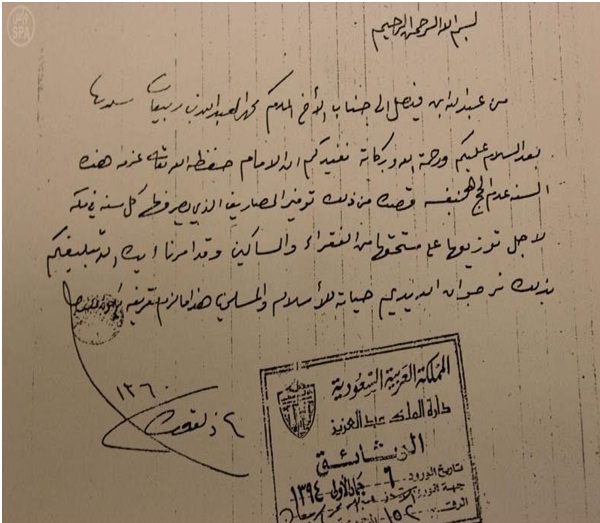 بسم الله الرحمن الرحيم
من عبدالله ابن فيصل الى جناب الأخ المكرم محمد العبدالله بن ربيعان سلمه الله
بعد السلام عليكم ورحمة الله وبركاته نفيدكم ان الامام حفظه الله تعالى عزم هذه
السنه عدم الحج بنفسه قصده من ذلك توفير المصاريف الذي يصرفها كل سنه في مكه
لاجل توزيعها على مستحقها من الفقراء والمساكين وقد امرنا ايده الله تبليغكم
بذلك نرجو ان الله يديم حياته للأسلام والمسلمين هذا مالزم تعريفه
١٣٦٠
٤ ذلقعدة
المملكة العربية السعودية
دارة الملك عبد العزيز
الوثائق
تاريخ الورود ٦ جماد الأولى ١٣٩٤
جهة الورود
الرقم ١٥٢
واس
SPA